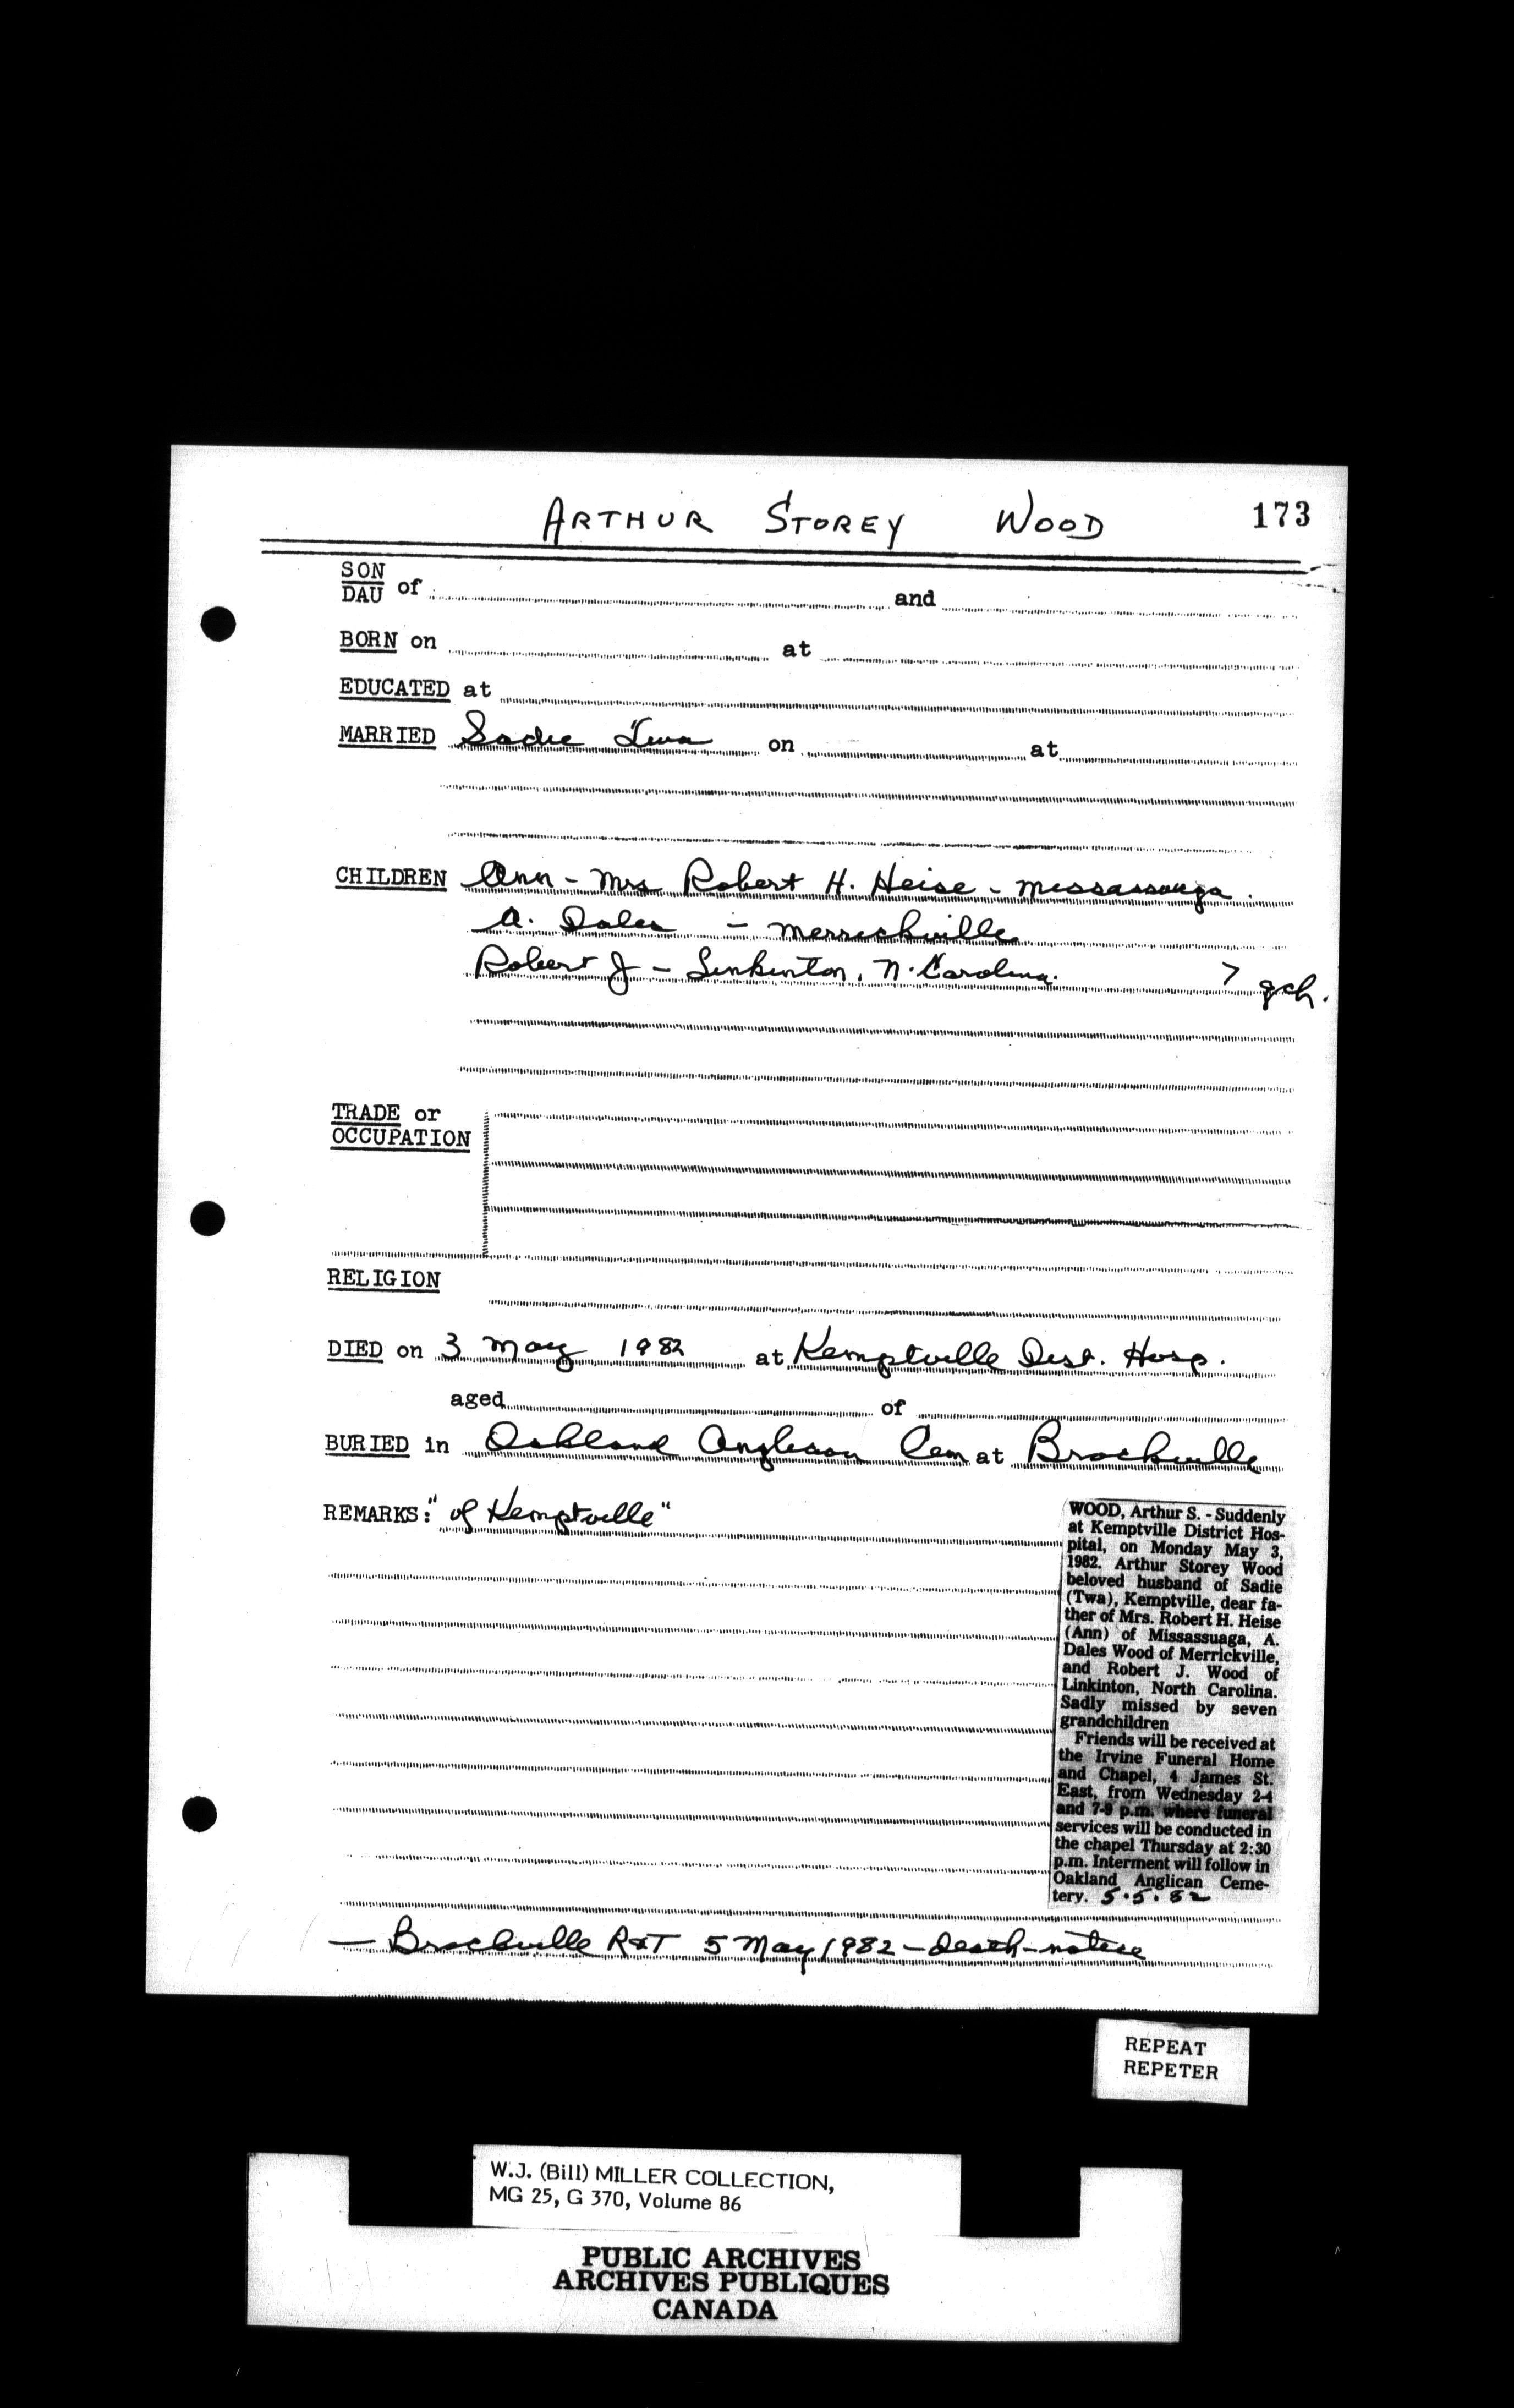 ARTHUR STOREY WOOD 173
SON
DAU of and
BORN on at
EDUCATED at
MARRIED Sadie Twa on at
CHILDREN Ann - Mrs Robert H. Heise - Missassauga.
A. Dales - Merrickville
Robert J - Linkinton, N. Carolina. 7 gch.
TRADE or
OCCUPATION
RELIGION
DIED on 3 May 1982 at Kemptville Dist. Hosp.
aged of
BURIED in Oakland Anglican Cem at Brockville
REMARKS: "of Kemptville"
WOOD, Arthur S. - Suddenly
at Kemptville District Hos-
pital, on Monday May 3,
1982. Arthur Storey Wood
beloved husband of Sadie
(Twa), Kemptville, dear fa-
ther of Mrs. Robert H. Heise
(Ann) of Missassuaga, A.
Dales Wood of Merrickville,
and Robert J. Wood of
Linkinton, North Carolina.
Sadly missed by seven
grandchildren
Friends will be received at
the Irvine Funeral Home
and Chapel, 4 James St.
East, from Wednesday 2-4
and 7-9 p.m. where funeral
services will be conducted in
the chapel Thursday at 2:30
p.m. Interment will follow in
Oakland Anglican Ceme-
tery. 5.5.82
- Brockville R&T 5 May 1982 - death-notice
REPEAT
REPETER
W.J. (Bill) MILLER COLLECTION,
MG 25, G 370, Volume 86
PUBLIC ARCHIVES
ARCHIVES PUBLIQUES
CANADA